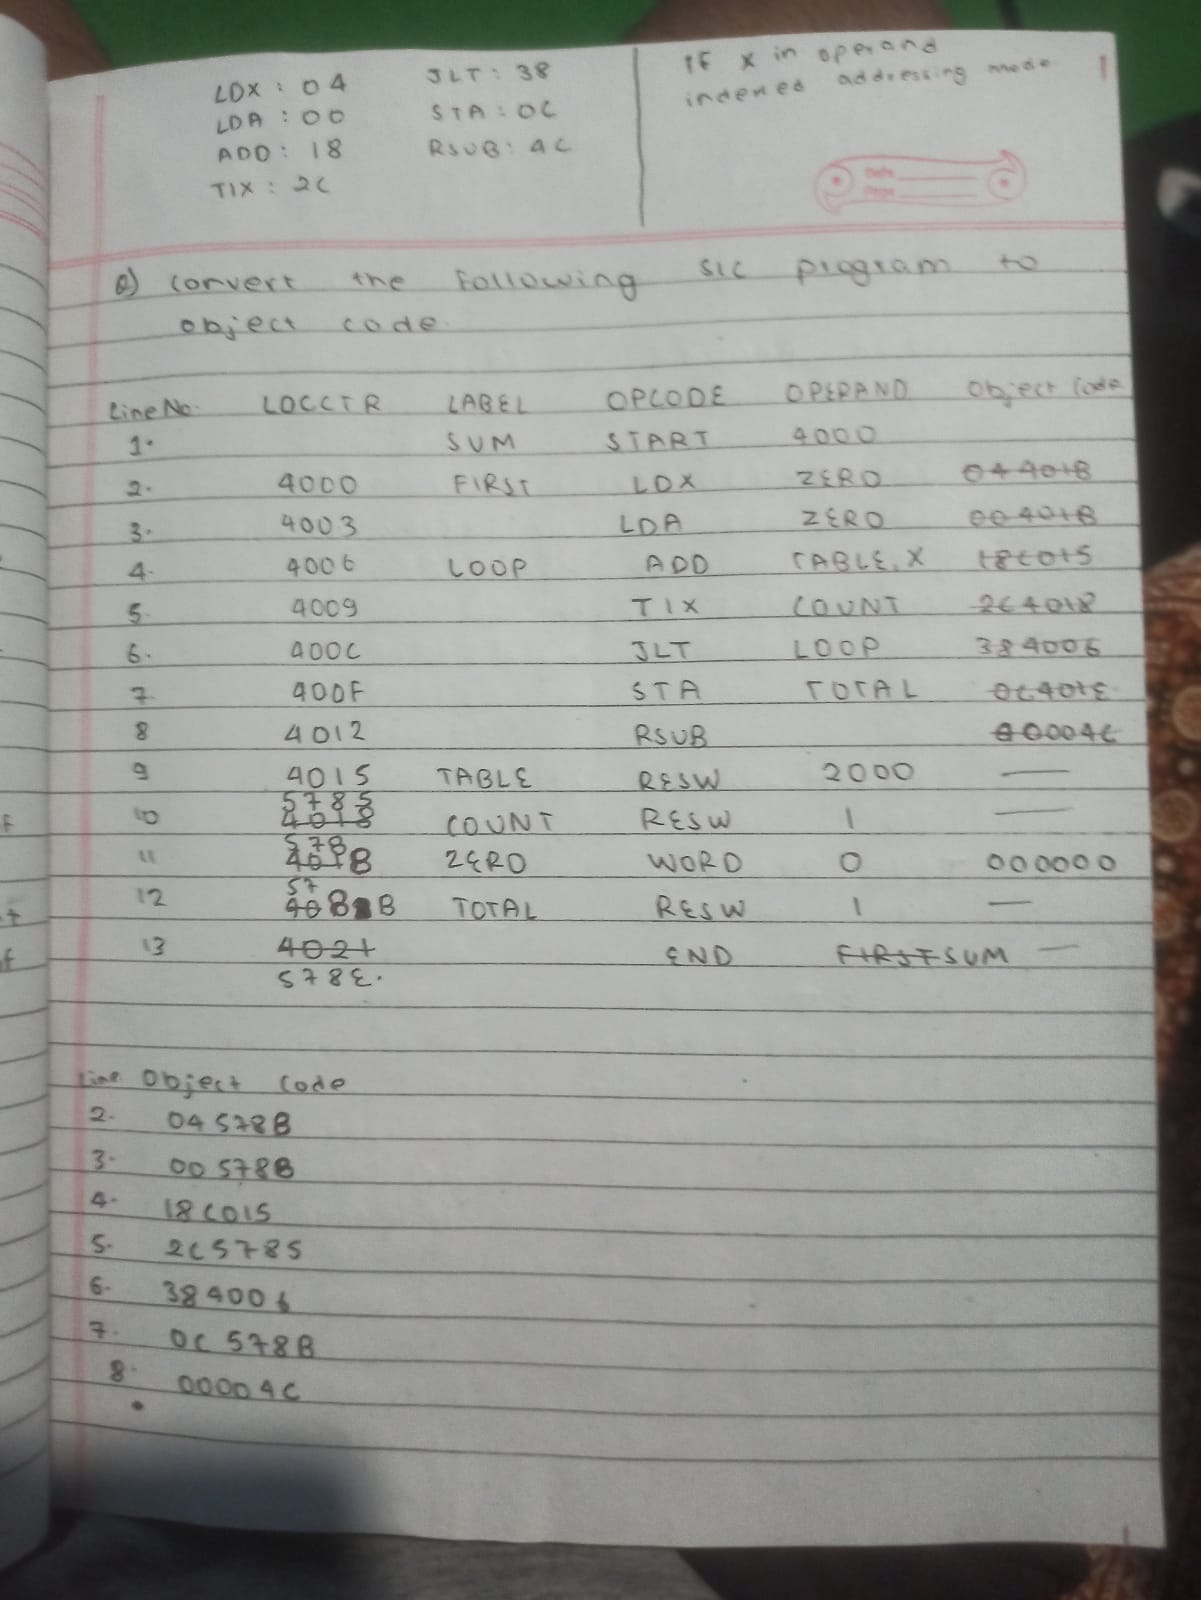 LDX : 04 JLT : 38 If x in operand
LDA : 00 STA : 0C indexed addressing mode
ADD : 18 RSUB : 4C
TIX : 2C
Date
Page
Q) Convert the following SIC program to
object code.
Line No. LOCCTR LABEL OPCODE OPERAND Object Code
1. SUM START 4000
2. 4000 FIRST LDX ZERO 04401B
3. 4003 LDA ZERO 00401B
4. 4006 LOOP ADD TABLE, X 18C015
5. 4009 TIX COUNT 2C4018
6. 400C JLT LOOP 384006
7. 400F STA TOTAL 0C401E
8 4012 RSUB 00004C
9 4015 TABLE RESW 2000 —
5785
10 4018 COUNT RESW 1 —
578
11 401B ZERO WORD 0 000000
57
12 8B TOTAL RESW 1 —
13 4021 END FIRST SUM —
578E.
Line Object Code
2. 04 578B
3. 00 578B
4. 18C015
5. 2C5785
6. 384006
7. 0C 578B
8. 00004C